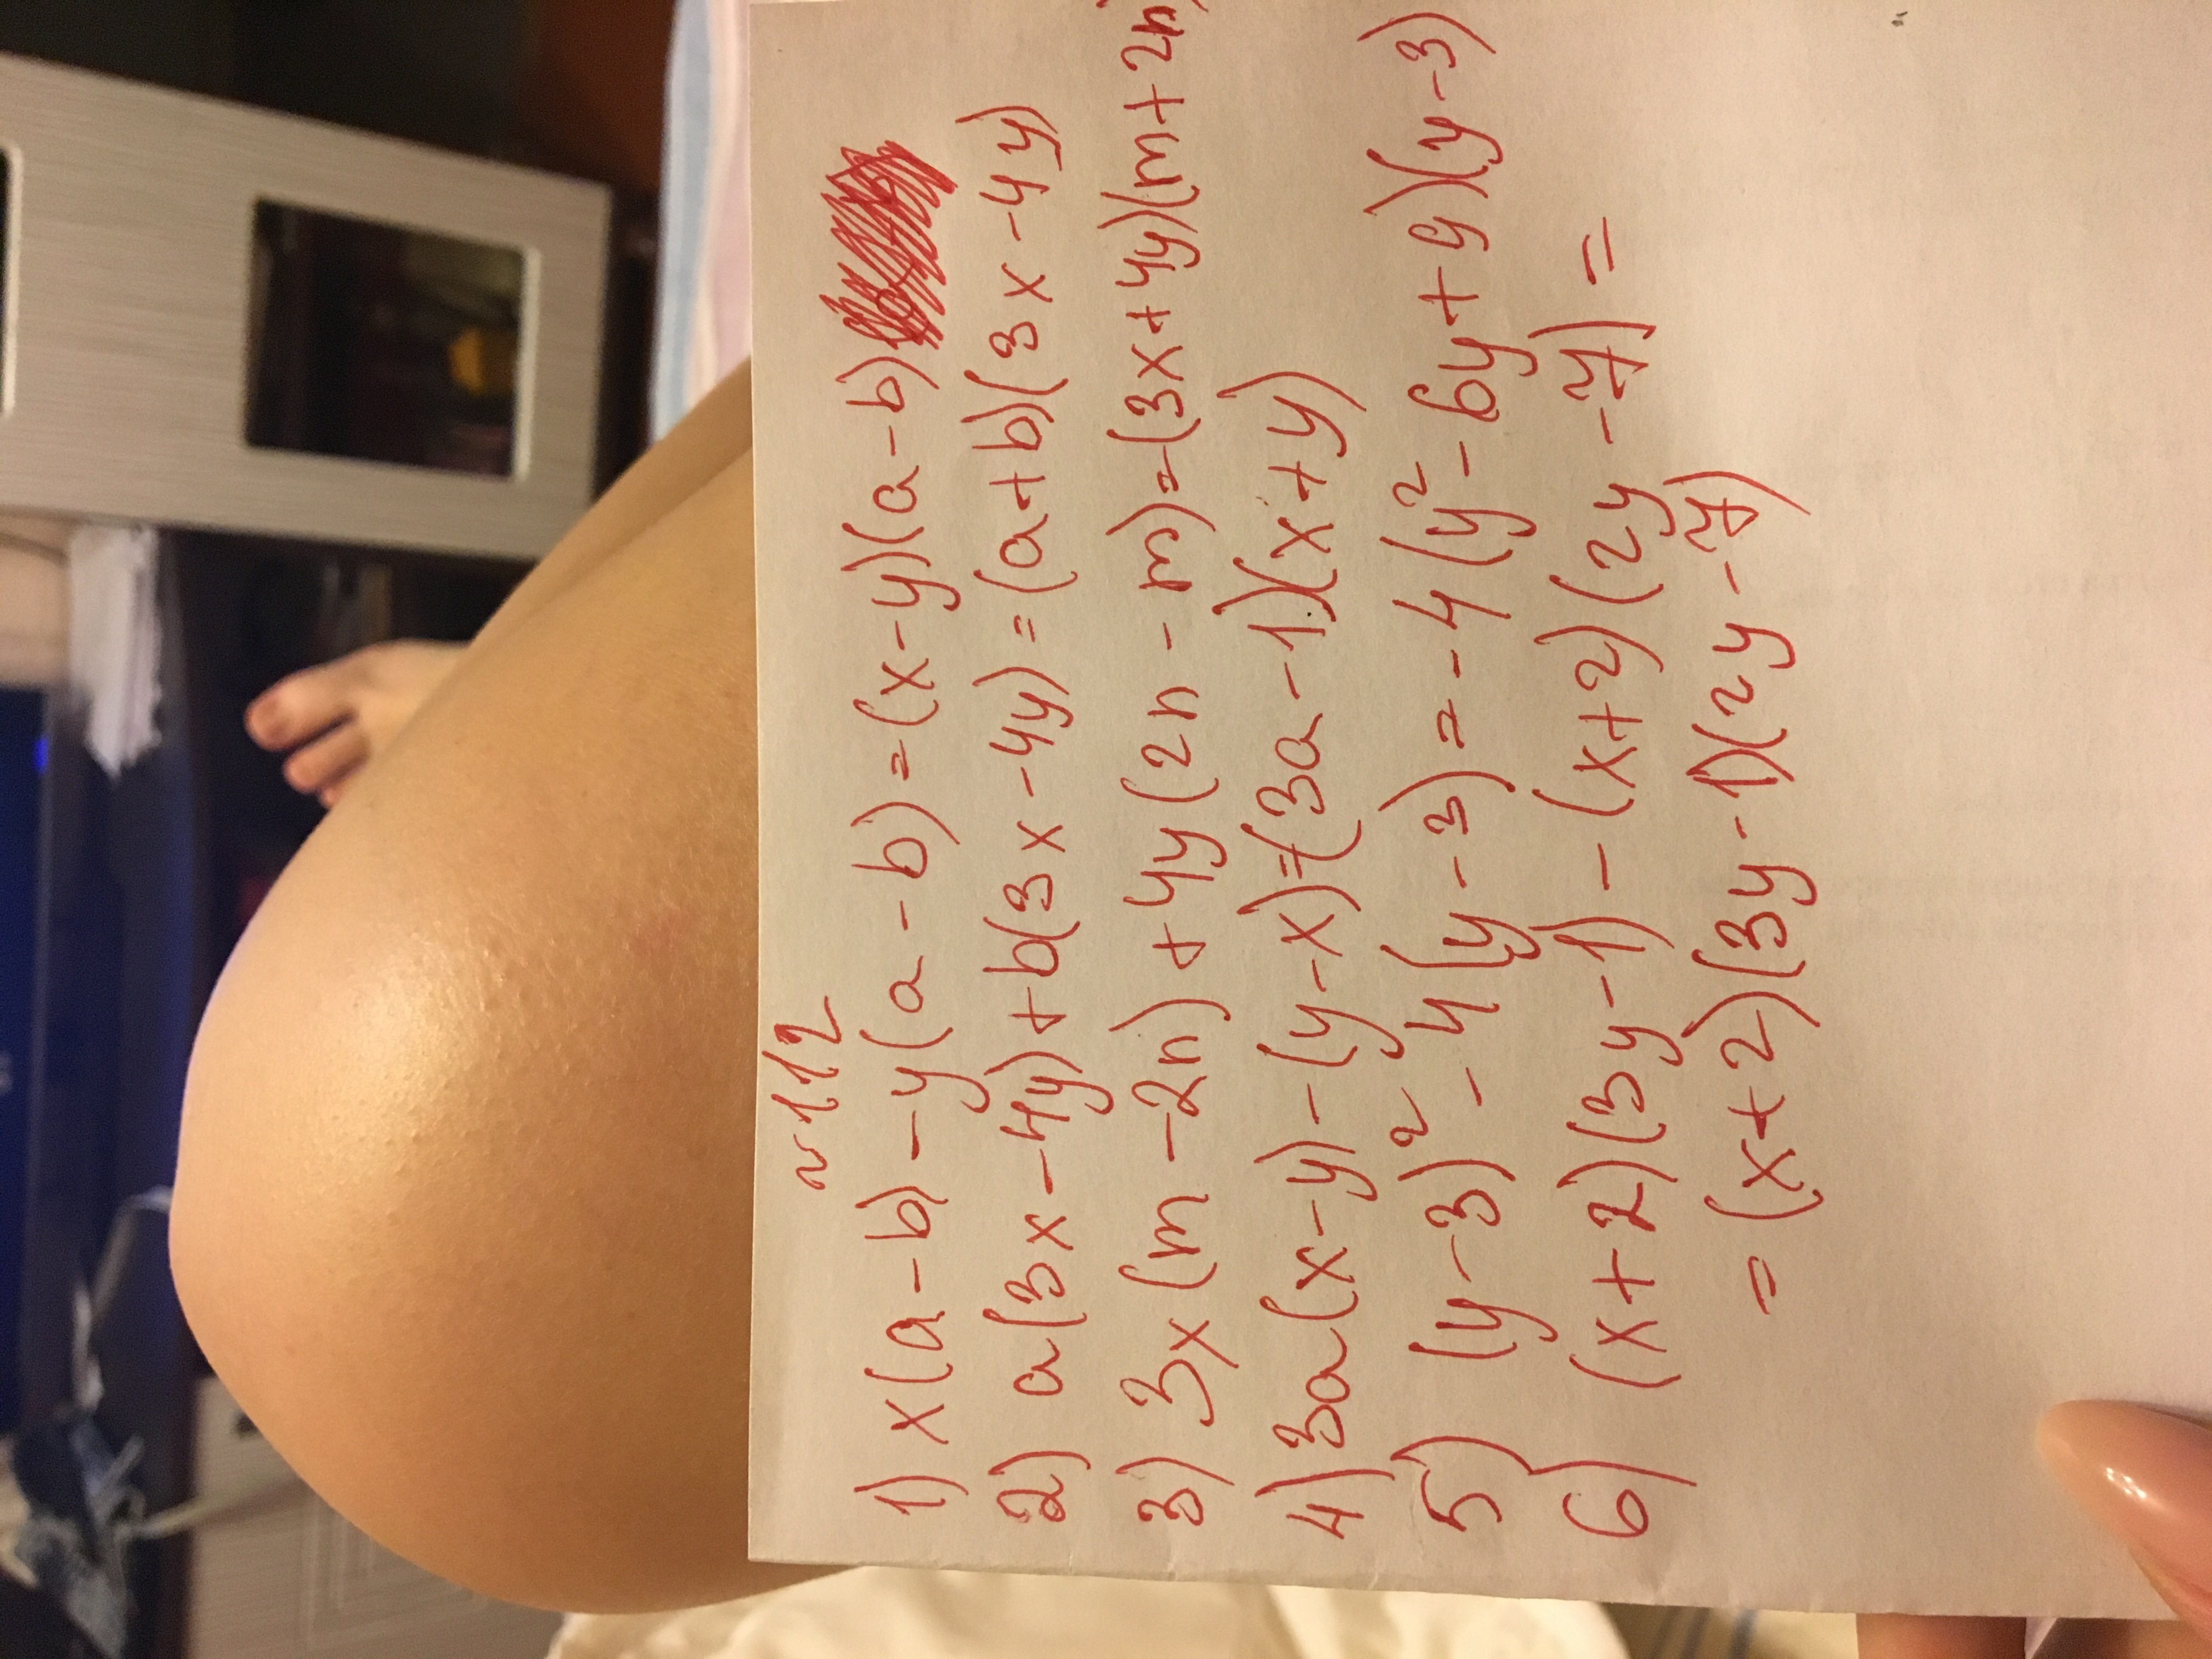 №112
1) x(a-b)-y(a-b)=(x-y)(a-b)
2) a(3x-4y)+b(3x-4y)=(a+b)(3x-4y)
3) 3x(m-2n)+4y(2n-m)=(3x+4y)(m+2n)
4) 3a(x-y)-(y-x)=(3a-1)(x+y)
5) (y-3)²-4(y-3)=-4(y²-6y+9)(y-3)
6) (x+2)(3y-1)-(x+2)(2y-7)=
=(x+2)(3y-1)(2y-7)